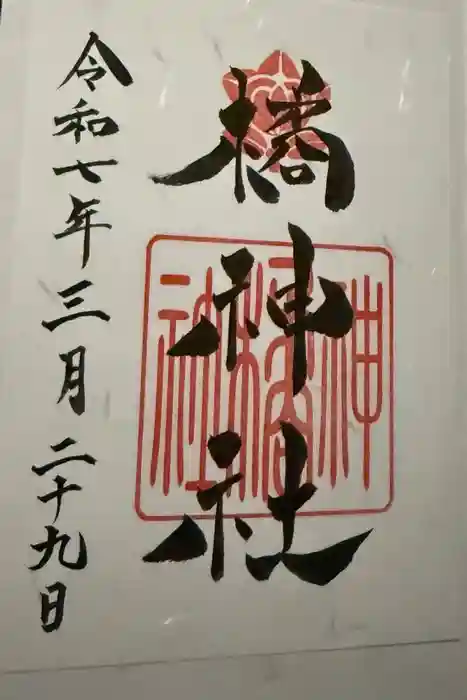 橘神社
令和七年三月二十九日